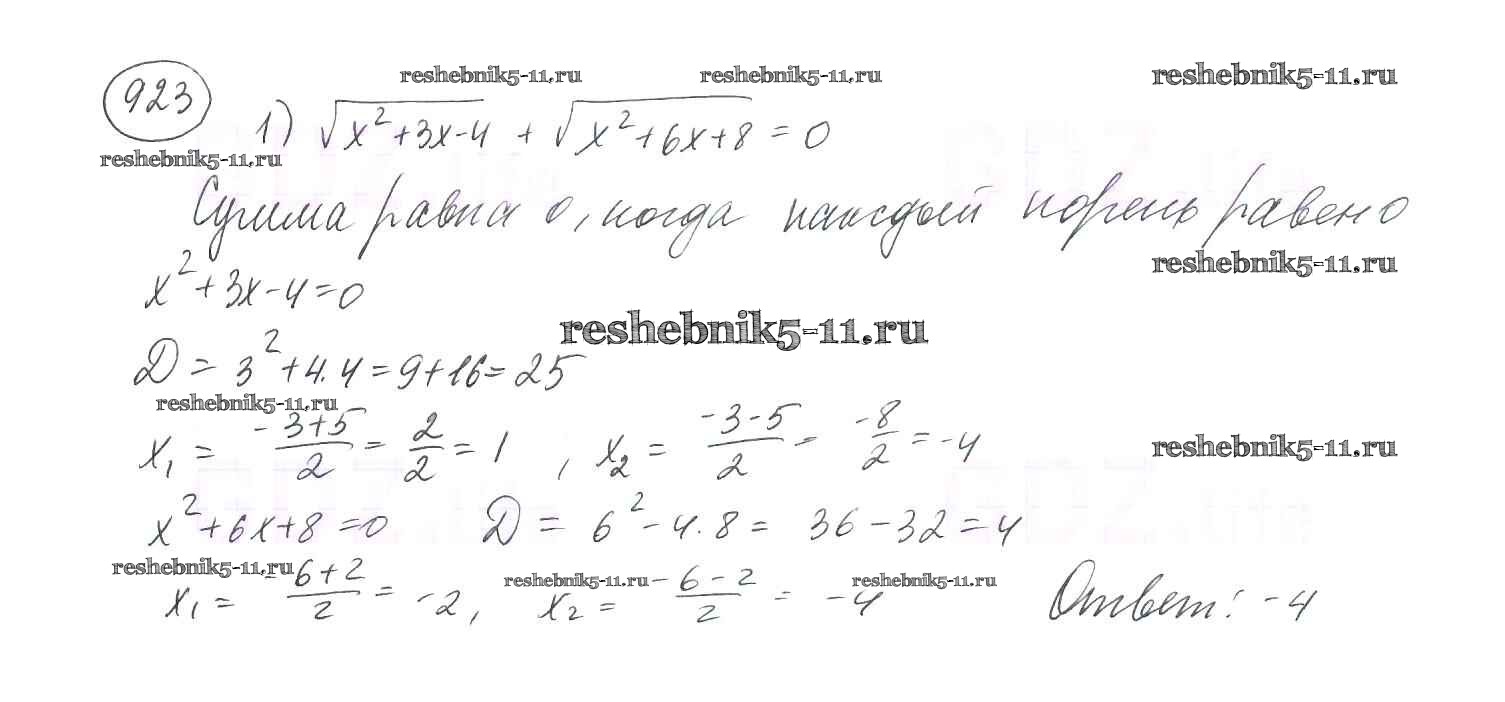 reshebnik5-11.ru reshebnik5-11.ru reshebnik5-11.ru
923
1) √(x²+3x-4) + √(x²+6x+8) = 0
reshebnik5-11.ru
Сумма равна 0, когда каждый корень равен 0
x²+3x-4=0
reshebnik5-11.ru
reshebnik5-11.ru
D = 3²+4·4=9+16=25
reshebnik5-11.ru
x₁ = (-3+5)/2 = 2/2 = 1 , x₂ = (-3-5)/2 = -8/2 = -4
reshebnik5-11.ru
x²+6x+8=0 D = 6²-4·8 = 36-32=4
reshebnik5-11.ru reshebnik5-11.ru reshebnik5-11.ru
x₁ = (-6+2)/2 = -2, x₂ = (-6-2)/2 = -4 Ответ: -4